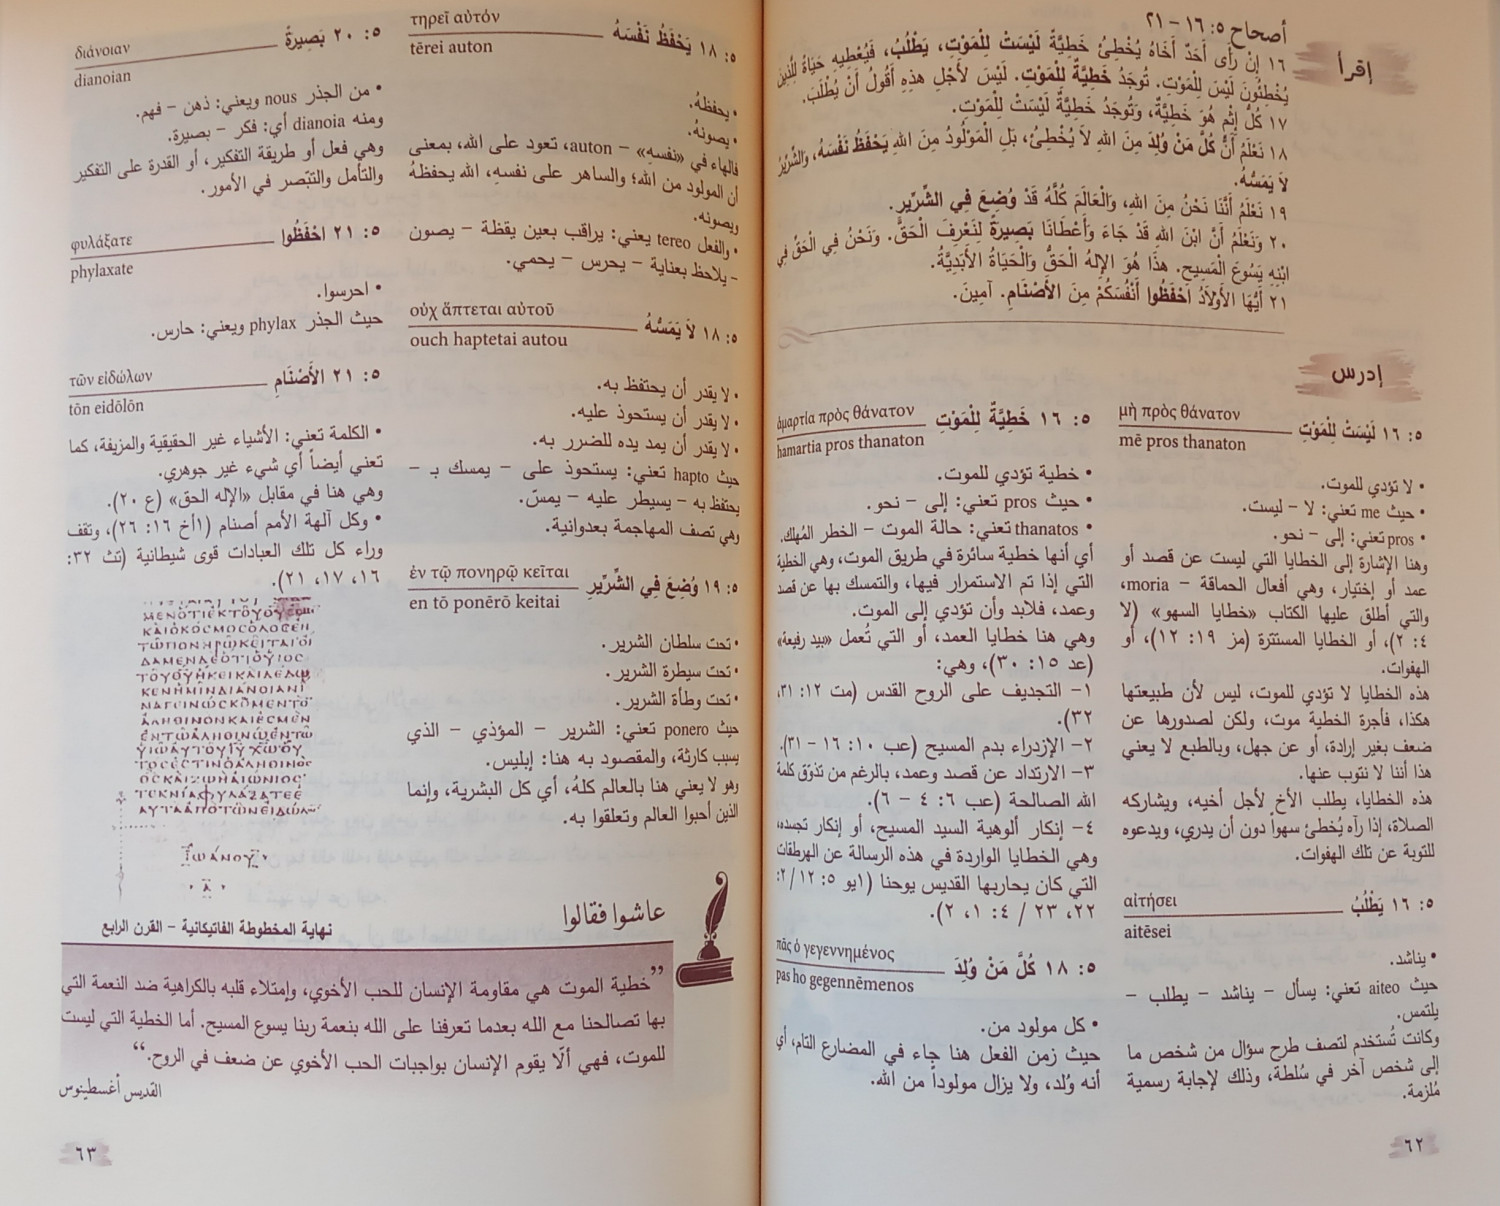 إقرأ
أصحاح ٥: ١٦ - ٢١
١٦ إِنْ رَأَى أَحَدٌ أَخَاهُ يُخْطِئُ خَطِيَّةً لَيْسَتْ لِلْمَوْتِ، يَطْلُبُ، فَيُعْطِيهِ حَيَاةً لِلَّذِينَ
يُخْطِئُونَ لَيْسَ لِلْمَوْتِ. تُوجَدُ خَطِيَّةٌ لِلْمَوْتِ. لَيْسَ لأَجْلِ هذِهِ أَقُولُ أَنْ يُطْلَبَ.
١٧ كُلُّ إِثْمٍ هُوَ خَطِيَّةٌ، وَتُوجَدُ خَطِيَّةٌ لَيْسَتْ لِلْمَوْتِ.
١٨ نَعْلَمُ أَنَّ كُلَّ مَنْ وُلِدَ مِنَ اللهِ لاَ يُخْطِئُ، بَلِ الْمَوْلُودُ مِنَ اللهِ يَحْفَظُ نَفْسَهُ، وَالشِّرِّيرُ
لاَ يَمَسُّهُ.
١٩ نَعْلَمُ أَنَّنَا نَحْنُ مِنَ اللهِ، وَالْعَالَمَ كُلَّهُ قَدْ وُضِعَ فِي الشِّرِّيرِ.
٢٠ وَنَعْلَمُ أَنَّ ابْنَ اللهِ قَدْ جَاءَ وَأَعْطَانَا بَصِيرَةً لِنَعْرِفَ الْحَقَّ. وَنَحْنُ فِي الْحَقِّ فِي
ابْنِهِ يَسُوعَ الْمَسِيحِ. هذَا هُوَ الإِلهُ الْحَقُّ وَالْحَيَاةُ الأَبَدِيَّةُ.
٢١ أَيُّهَا الأَوْلاَدُ احْفَظُوا أَنْفُسَكُمْ مِنَ الأَصْنَامِ. آمِينَ.
إدرس
٥: ١٦ لَيْسَتْ لِلْمَوْتِ
μὴ πρὸς θάνατον
mē pros thanaton
• لا تؤدي للموت.
• حيث me تعني: لا - ليست.
• pros تعني: إلى - نحو.
وهنا الإشارة إلى الخطايا التي ليست عن قصد أو
عمد أو إختيار، وهي أفعال الحماقة - moria،
والتي أطلق عليها الكتاب «خطايا السهو» (لا
٤: ٢)، أو الخطايا المستترة (مز ١٩: ١٢)، أو
الهفوات.
هذه الخطايا لا تؤدي للموت، ليس لأن طبيعتها
هكذا، فأجرة الخطية موت، ولكن لصدورها عن
ضعف بغير إرادة، أو عن جهل، وبالطبع لا يعني
هذا أننا لا نتوب عنها.
هذه الخطايا، يطلب الأخ لأجل أخيه، ويشاركه
الصلاة، إذا رآه يُخطئ سهواً دون أن يدري، ويدعوه
للتوبة عن تلك الهفوات.
٥: ١٦ يَطْلُبُ
αἰτήσει
aitēsei
• يناشد.
حيث aiteo تعني: يسأل - يناشد - يطلب -
يلتمس.
وكانت تُستخدم لتصف طرح سؤال من شخص ما
إلى شخص آخر في سُلطة، وذلك لإجابة رسمية
مُلزمة.
٥: ١٦ خَطِيَّةٌ لِلْمَوْتِ
ἁμαρτία πρὸς θάνατον
hamartia pros thanaton
• خطية تؤدي للموت.
• حيث pros تعني: إلى - نحو.
• thanatos تعني: حالة الموت - الخطر المُهلك.
أي أنها خطية سائرة في طريق الموت، وهي الخطية
التي إذا تم الاستمرار فيها، والتمسك بها عن قصد
وعمد، فلابد وأن تؤدي إلى الموت.
وهي هنا خطايا العمد، أو التي تُعمل «بيد رفيعة»
(عد ١٥: ٣٠)، وهي:
١- التجديف على الروح القدس (مت ١٢: ٣١،
٣٢).
٢- الإزدراء بدم المسيح (عب ١٠: ١٦ - ٣١).
٣- الارتداد عن قصد وعمد، بالرغم من تذوّق كلمة
الله الصالحة (عب ٦: ٤ - ٦).
٤- إنكار ألوهية السيد المسيح، أو إنكار تجسده،
وهي الخطايا الواردة في هذه الرسالة عن الهرطقات
التي كان يحاربها القديس يوحنا (١يو ٥: ١٢ / ٢:
٢٢، ٢٣ / ٤: ١، ٢).
٥: ١٨ كُلَّ مَنْ وُلِدَ
πᾶς ὁ γεγεννημένος
pas ho gegennēmenos
• كل مولود من.
حيث زمن الفعل هنا جاء في المضارع التام، أي
أنه وُلد، ولا يزال مولوداً من الله.
٦٢
٥: ١٨ يَحْفَظُ نَفْسَهُ
τηρεῖ αὐτόν
tērei auton
• يحفظهُ.
• يصونهُ.
فالهاء في «نفسهِ» - auton، تعود على الله، بمعنى
أن المولود من الله؛ والساهر على نفسهِ، الله يحفظهُ
ويصونه.
• والفعل tereo يعني: يراقب بعين يقظة - يصون
- يلاحظ بعناية - يحرس - يحمي.
٥: ١٨ لاَ يَمَسُّهُ
οὐχ ἅπτεται αὐτοῦ
ouch haptetai autou
• لا يقدر أن يحتفظ به.
• لا يقدر أن يستحوذ عليه.
• لا يقدر أن يمد يده للضرر به.
حيث hapto تعني: يستحوذ على - يمسك بـ -
يحتفظ به - يسيطر عليه - يمسّ.
وهي تصف المهاجمة بعدوانية.
٥: ١٩ وُضِعَ فِي الشِّرِّيرِ
ἐν τῷ πονηρῷ κεῖται
en tō ponērō keitai
• تحت سلطان الشرير.
• تحت سيطرة الشرير.
• تحت وطأة الشرير.
حيث ponero تعني: الشرير - المؤذي - الذي
يسبب كارثة، والمقصود به هنا: إبليس.
وهو لا يعني هنا بالعالم كلهُ، أي كل البشرية، وإنما
الذين أحبوا العالم وتعلقوا به.
٥: ٢٠ بَصِيرَةً
διάνοιαν
dianoian
• من الجذر nous ويعني: ذهن - فهم.
ومنه dianoia أي: فكر - بصيرة.
وهي فعل أو طريقة التفكير، أو القدرة على التفكير
والتأمل والتبّصر في الأمور.
٥: ٢١ احْفَظُوا
φυλάξατε
phylaxate
• احرسوا.
حيث الجذر phylax ويعني: حارس.
٥: ٢١ الأَصْنَامِ
τῶν εἰδώλων
tōn eidōlōn
• الكلمة تعني: الأشياء غير الحقيقية والمزيفة، كما
تعني أيضاً أي شيء غير جوهري.
وهي هنا في مقابل «الإله الحق» (ع ٢٠).
• وكل آلهة الأمم أصنام (١أخ ١٦: ٢٦)، وتقف
وراء كل تلك العبادات قوى شيطانية (تث ٣٢:
١٦، ١٧، ٢١).
نهاية المخطوطة الفاتيكانية - القرن الرابع
عاشوا فقالوا
”خطية الموت هي مقاومة الإنسان للحب الأخوي، وإمتلاء قلبه بالكراهية ضد النعمة التي
بها تصالحنا مع الله بعدما تعرفنا على الله بنعمة ربنا يسوع المسيح. أما الخطية التي ليست
للموت، فهي ألّا يقوم الإنسان بواجبات الحب الأخوي عن ضعف في الروح.“
القديس أغسطينوس
٦٣